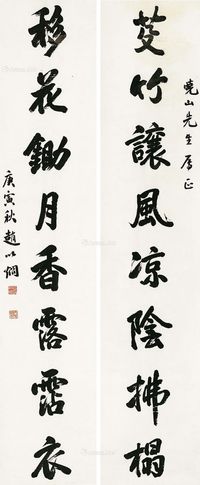 曉山先生屬正
芟竹讓風凉陰拂榻
移花鋤月香露霑衣
庚寅秋趙以炯